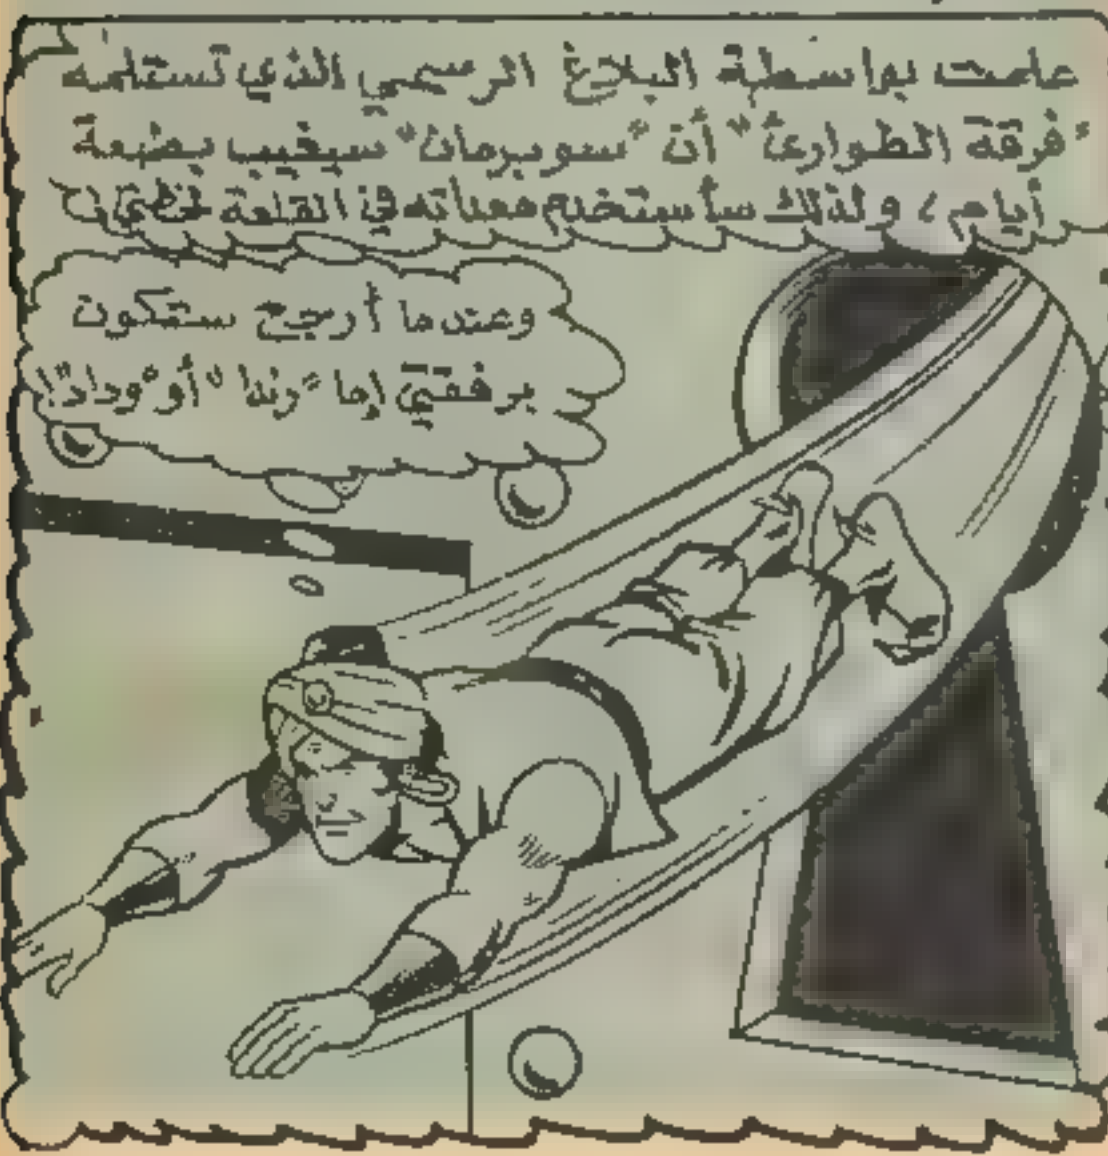 علمت بواسطة البلاغ الرسمي الذي تستلمه
"فرقة الطوارئ" أن "سوبرمان" سيغيب بضعة
أيام، ولذلك سأستخدم معداته في القلعة لخطتي
وعندما أرجع ستكون
برفقتي إما "رندا" أو "وداد"!